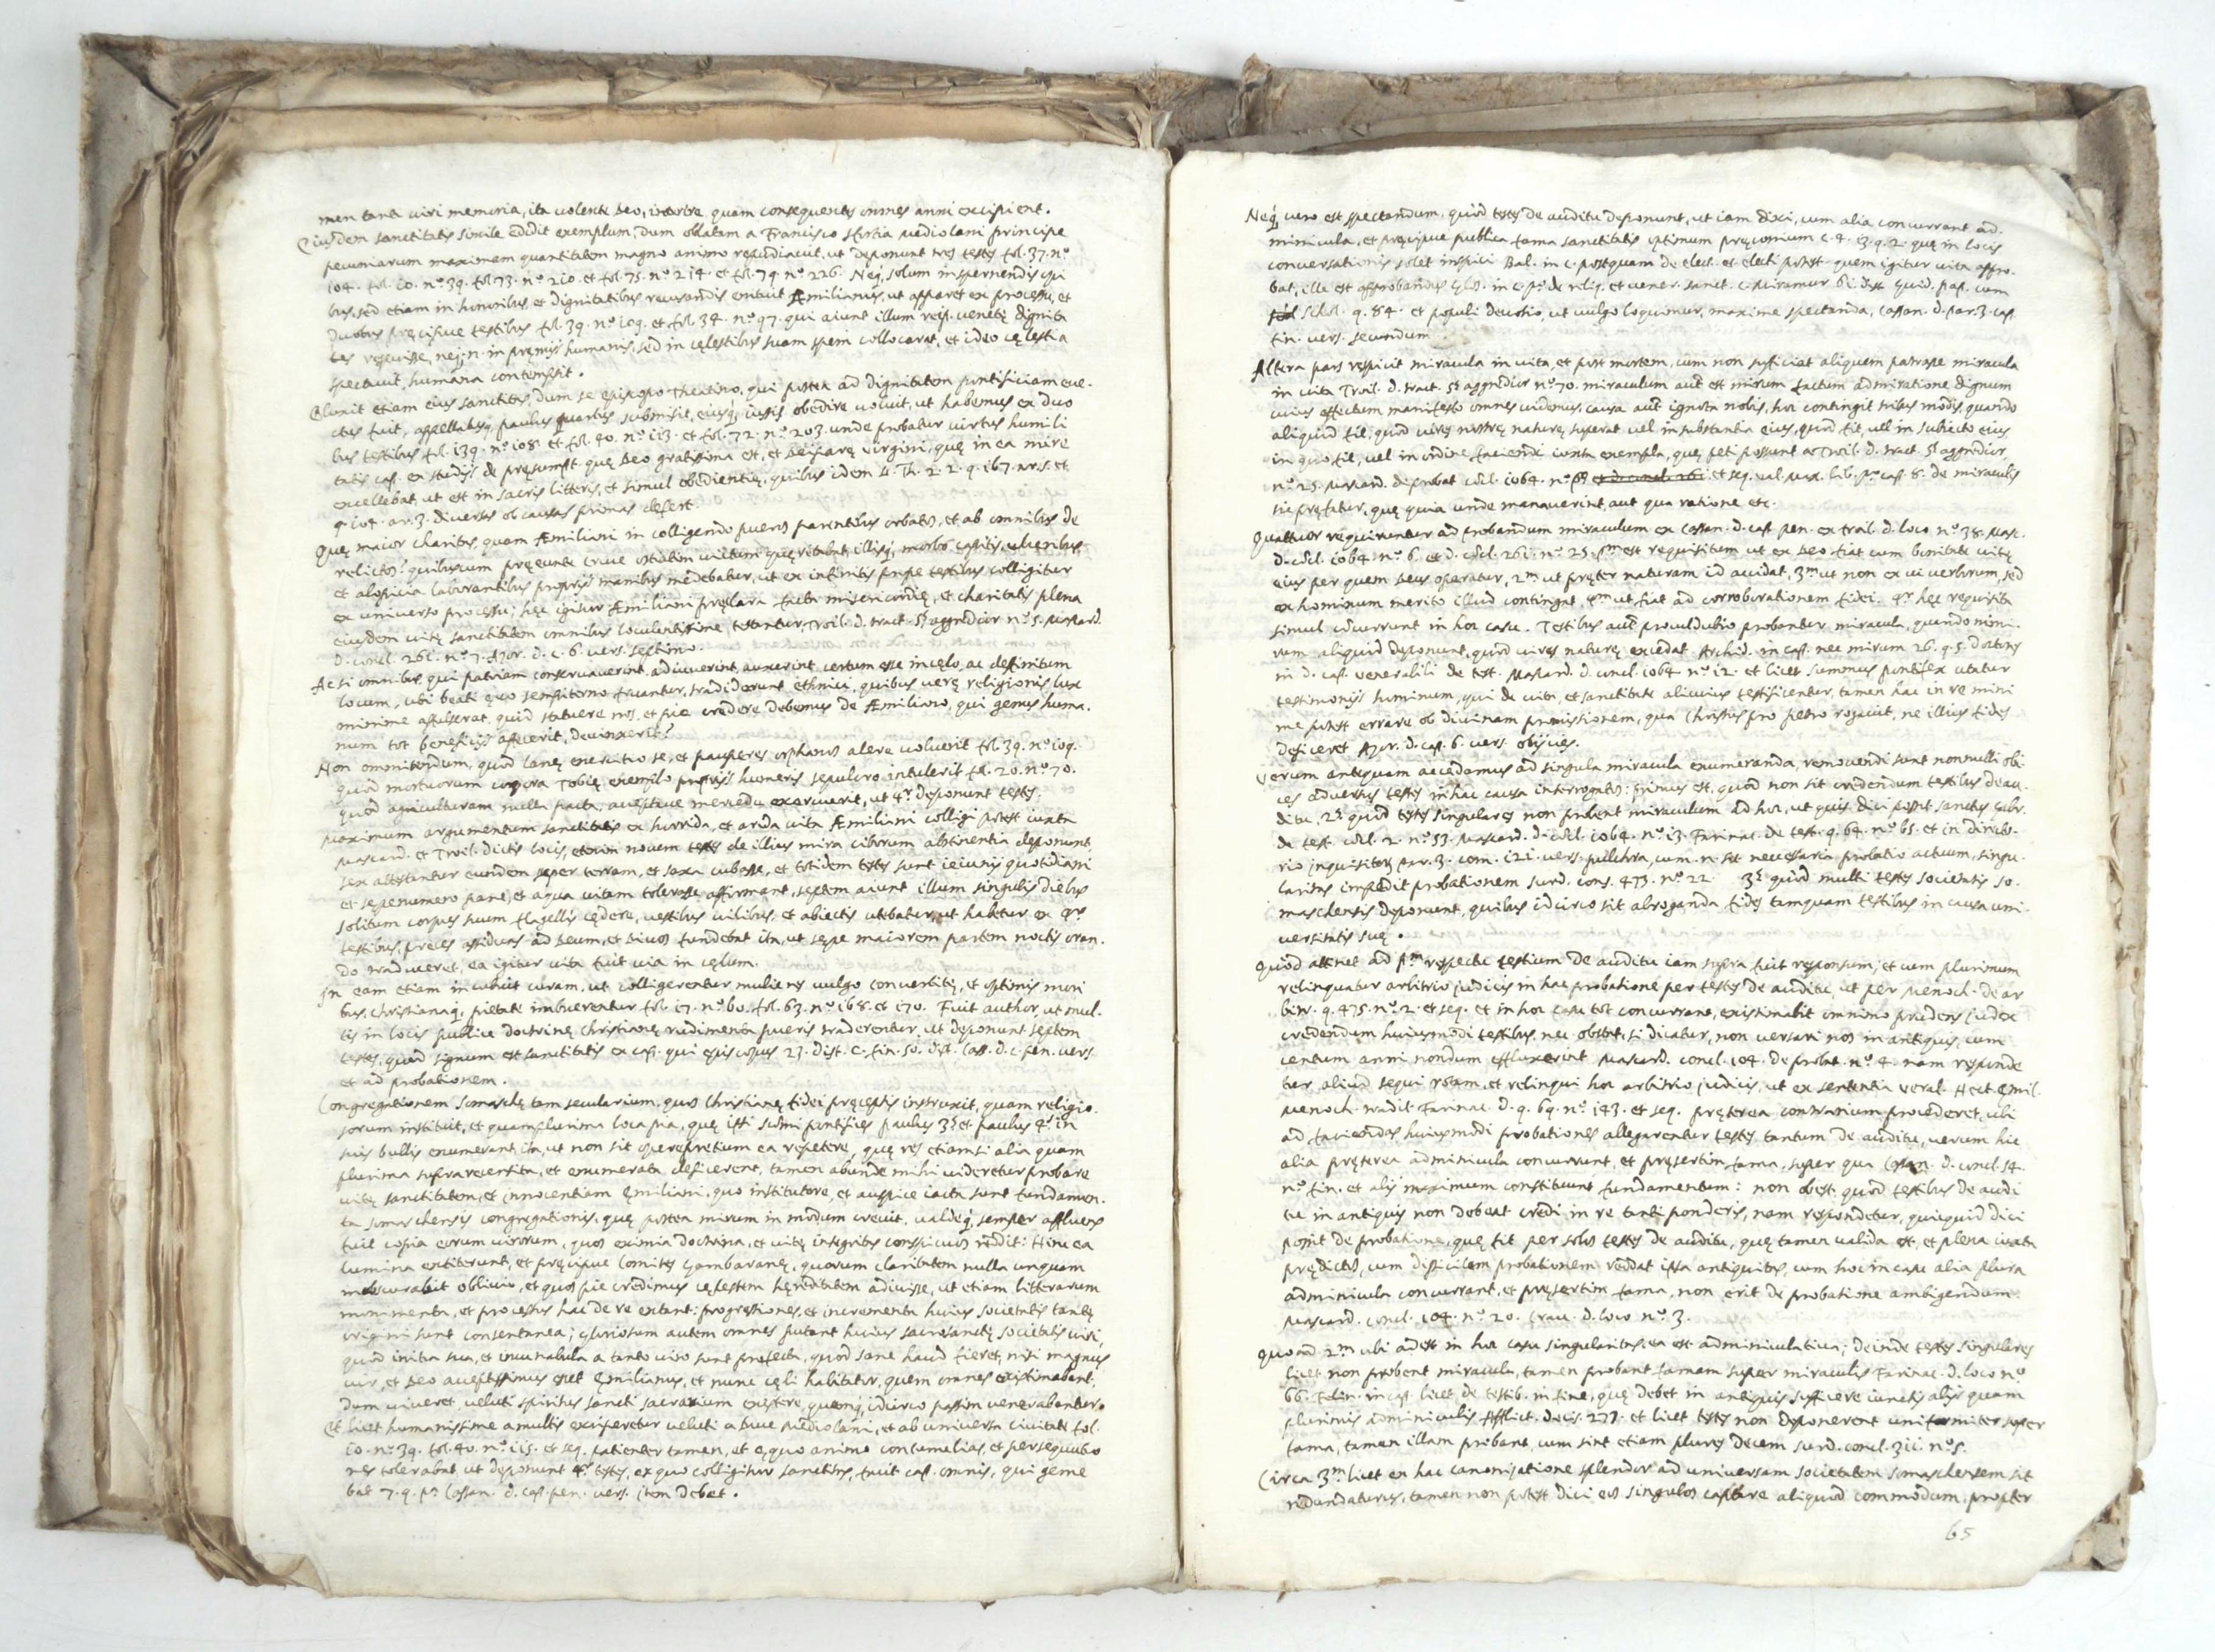 men tanti viri memoria, ita volente Deo, quam consequentes omnes anni excipient.
Eiusdem sanctitatis simile edidit exemplum, dum oblatam a Francisco Sfortia Mediolani principe
pecuniarum maximam quantitatem magno animo repudiavit, ut deponunt tres testes fol. 37. nº
104. fol. 10. nº 39. fol. 73. nº 210. et fol. 75. nº 214. et fol. 79. nº 226. Neq, solum in spernendis opi
bus, sed etiam in honoribus, et dignitatibus recusandis enituit Æmilianus, ut apparet ex processu, et
duobus pręcipue testibus fol. 39. nº 109. et fol. 34. nº 97. qui aiunt illum reip. venetę dignita
tes reiecisse, neq. n. in pręmijs humanis, sed in cęlestibus suam spem collocarat, et ideo cęlestia
spectavit, humana contempsit.
Eluxit etiam eius sanctitas, dum se episcopo Theatino, qui postea ad dignitatem pontificiam eve-
ctus fuit, appellatusq, paulus quartus submisit, eiusq, iussis obedire voluit, ut habemus ex duo
bus testibus fol. 139. nº 108. et fol. 40. nº 113. et fol. 72. nº 203. unde probatur virtus humili
tatis cap. ex studijs de pręsumpt. quę Deo gratissima est, et Deiparę virgini, quę in ea mire
excellebat, ut est in sacris litteris, et simul obedientię, quibus idem D. Th. 2. 2. q. 167. ar. 1. et
q. 104. ar. 3. diversis ob causas primas defert.
Quę maior charitas, quam Æmiliani in colligendo pueros parentibus orbatos, et ab omnibus de
relictos? quibuscum pręeunte cruce ostiatim victum quęritabat, illisq, morbo capitis, ulceribus
et alopicia laborantibus proprijs manibus medebatur, ut ex infinitis prope testibus colligitur
ex universo processu; hęc igitur Æmiliani pręclara facta misericordię, et charitatis plena
eiusdem vitę sanctitatem omnibus loculentissime testantur, Troil. d. tract. § aggredior nº 5. Mascard.
d. concl. 261. nº 7. Azor. d. c. 6. vers. septimo.
Ac si omnibus, qui patriam conservaverint, adiuverint, auxerint certum esse in cęlo, ac definitum
locum, ubi beati ęvo sempiterno fruantur, tradiderunt ethnici, quibus verę religionis lux
minime affulserat, quid statuere nos, et pie credere debemus de Æmiliano, qui genus huma-
num tot beneficijs affecerit, devinxerit?
Non omonitendum, quod lanę exercitio se, et pauperes orphanos alere voluerit fol. 39. nº 109.
quod mortuorum corpora Tobię exemplo proprijs humeris sepulcro intulerit fol. 20. nº 70.
quod agriculturam nulla pacta, acceptave mercede exercuerit, ut 4r deponunt testes.
Maximum argumentum sanctitatis ex horrida, et arida vita Æmiliani colligi potest iuxta
Mascard. et Troil. dictis locis, etenim novem testes de illius mira ciborum abstinentia deponunt,
sex attestantur eundem super terram, et saxa cubasse, et totidem testes sunt ieiunijs quotidiani
et sępenumero pane, et aqua vitam tolerasse affirmant, septem aiunt illum singulis diebus
solitum corpus suum flagellis cędere, vestibus vilibus, et abiectis utebatur, ut habetur ex 4r
testibus, preces assiduas ad Deum, et Divos fundebat ita, ut sępe maiorem partem noctis oran-
do traduceret, ea igitur vita fuit via in cęlum.
In eam etiam incubuit curam, ut colligerentur mulieres vulgo convertitę, et optimis mori
bus, christianaq, pietate imbuerentur fol. 17. nº 60. fol. 63. nº 168. et 170. Fuit author, ut mul-
tis in locis publice doctrinę christianę rudimenta pueris traderentur, ut deponunt septem
testes, quod signum est sanctitatis ex cap. qui episcopus 23. dist. c. fin. 50. dist. Cass. d. c. pen. vers.
et ad probationem.
Congregationem Somaschę tam secularium, quos Christianę fidei pręceptis instruxit, quam religio-
sorum instituit, et quamplurima loca pia, quę ipsi summi pontifices paulus 3s et paulus 4s in
suis bullis enumerant, ita, ut non sit operępretium ea repetere, quę res etiam si alia quam
plurima supra recensita, et enumerata deficerent, tamen abunde mihi videretur probare
vitę sanctitatem, et innocentiam Emiliani, quo institutore, et auspice iacta sunt fundamen-
ta somaschensis congregationis, quę postea mirum in modum crevit, valdeq, semper affluens
fuit copia eorum virorum, quos eximia doctrina, et vitę integritas conspicuos reddit: Hinc ea
lumina extiterunt, et pręcipue comites Gambaranę, quorum claritatem nulla unquam
inobscurabit oblivio, et quos pie credimus cęlestem hęreditatem adivisse, ut etiam litterarum
monumenta, et processus hac de re extant: progressiones, et incrementa huius societatis tantę
origini sunt consentanea; gloriosum autem omnes putant huius sacrosanctę societatis viri,
quod initia sua, et incunabula a tanto viro sunt profecta, quod sane haud fieret, nisi magnus
vir, et Deo acceptissimus esset Emilianus, et nunc cęli habitator, quem omnes existimabant,
dum viveret veluti spiritus sancti sacrarium existere, quemq, idcirco passim venerabantur.
Et licet humanissime a multis exciperetur veluti a Duce Mediolani, et ab universa civitate fol.
10. nº 39. fol. 40. nº 115. et seq. patienter tamen, et ęquo animo contumelias, et persequutio
nes tolerabat, ut deponunt 4r testes, ex quo colligitur sanctitas, fuit cap. omnis, qui geme
bat 7. q. pa Cassan. d. cap. pen. vers. item debet.
Neq, vero est spectandum, quod testes de auditu deponunt, ut iam dixi, cum alia concurrant ad-
minicula, et pręcipue publica fama sanctitatis optimum pręconium c. 4. 13. q. 2. quę in locis
conversationis solet inspici Bal. in c. postquam de elect. et electi potest. quem igitur vita appro-
bat, ille est approbandus Glos. in c. po de relig. et vener. sanct. c. miramur 61. dist. Guid. pap. cum
schol. q. 84. et populi devotio, ut vulgo loquimur, maxime spectanda, Cassan. d. par. 3. cap.
fin. vers. secundum
Altera pars respicit miracula in vita, et post mortem, cum non sufficiat aliquem patrasse miracula
in vita Troil. d. tract. § aggredior nº 70. miraculum aut est mirum factum admiratione dignum
cuius effectum manifesto omnes videmus, causa aut ignota nobis, hoc contingit tribus modis, quando
aliquid fit, quod vires nostrę naturę superat vel in substantia eius, quod fit, vel in subiecto eius
in quo fit, vel in ordine faciendi iuxta exempla, quę peti possunt a Troil. d. tract. § aggredior
nº 25. Mascard. de probat. cōcl. 1064. nº po et seq. val. Max. lib. po cap. 8. de miraculis
sic pręfatur, quę quia unde manaverint, aut qua ratione etc.
Quattuor requiruntur ad probandum miraculum ex Cassan. d. cap. pen. ex Troil. d. loco nº 38. Masc.
d. cōcl. 1064. nº 6. et d. cōcl. 261. nº 25. pm est requisitum ut ex Deo fiat cum bonitate vitę
eius per quem Deus operatur, 2m ut pręter naturam id accidat, 3m ut non ex vi verborum, sed
ex hominum merito illud contingat, 4m ut fiat ad corroborationem fidei. 4r hęc requisita
simul cōcurrunt in hoc casu. Testibus aut proculdubio probantur miracula, quando nimi-
rum aliquid deponunt, quod vires naturę excedat Archid. in cap. nec mirum 26. q. 5. doctores
in d. cap. venerabili de test. Mascard. d. concl. 1064. nº 12. et licet summus pontifex utatur
testimonijs hominum, qui de vita, et sanctitate alicuius testificentur, tamen hac in re mini
me potest errare ob divinam promissionem, qua Christus pro petro rogavit, ne illius fides
deficeret Azor. d. cap. 6. vers. obijcies.
Verum antequam accedamus ad singula miracula enumeranda, removendi sunt nonnulli obi-
ces adversus testes in hac causa interrogatos: primus est, quod non sit credendum testibus de au-
ditu, 2s quod testes singulares non probent miraculum ad hoc, ut quis dici possit sanctus Gabr.
de test. cōcl. 2. nº 53. Mascard. d. cōcl. 1064. nº 13. Farinac. de test. q. 64. nº 65. et in directo-
rio inquisitorum par. 3. com. 121. vers. pulchra, cum. n. sit necessaria probatio actuum, singu-
laritas impedit probationem surd. cons. 473. nº 22. 3s quod multi testes societatis so-
maschensis deponunt, quibus idcirco sit abroganda fides tamquam testibus in causa uni-
versitatis suę.
Quod attinet ad pm respectu testium de auditu iam supra fuit responsum; et cum plurimum
relinquatur arbitrio iudicis in hac probatione per testes de auditu, ut per Menoch. de ar
bitr. q. 475. nº 2. et seq. et in hoc casu tot concurrant, existimabit omnino prudens iudex
credendum huiusmodi testibus, nec obstat, si dicatur, non versari nos in antiquis, cum
centum anni nondum effluxerint Mascard. concl. 104. de probat. nº 4. nam responde
tur, aliud sequi rotam, et relinqui hoc arbitrio iudicis, ut ex sententia veral. Hect. Emil.
Menoch. tradit Farinac. d. q. 69. nº 143. et seq. pręterea contrarium procederet, ubi
ad faciendas huiusmodi probationes allegarentur testes tantum de auditu, verum hic
alia pręterea adminicula concurrunt, et pręsertim fama, super qua Cassan. d. concl. 14.
nº fin. et alij maximum constituunt fundamentum: non obest, quod testibus de audi
tu in antiquis non debeat credi in re tanti ponderis, nam respondetur, quicquid dici
possit de probatione, quę fit per solos testes de auditu, quę tamen valida est, et plena iuxta
prędictos, cum difficilem probationem reddat ipsa antiquitas, cum hoc in casu alia plura
adminicula concurrant, et pręsertim fama, non erit de probatione ambigendum.
Mascard. concl. 104. nº 20. Crav. d. loco nº 3.
Quo ad 2m ubi adest in hoc casu singularitas, ea est adminiculativa; deinde testes singulares
licet non probent miracula, tamen probant famam super miraculis Farinac. d. loco nº
66. Felin. in cap. licet de testib. in fine, quę debet in antiquis sufficere iunctis alijs quam
plurimis adminiculis Afflict. decis. 277. et licet testes non deponerent uniformiter super
fama, tamen illam probant, cum sint etiam plures decem surd. concl. 311. nº 5.
Circa 3m licet ex hac canonizatione splendor ad universam societatem somaschensem sit
redundaturus, tamen non potest dici eos singulos captare aliquod commodum, propter
65